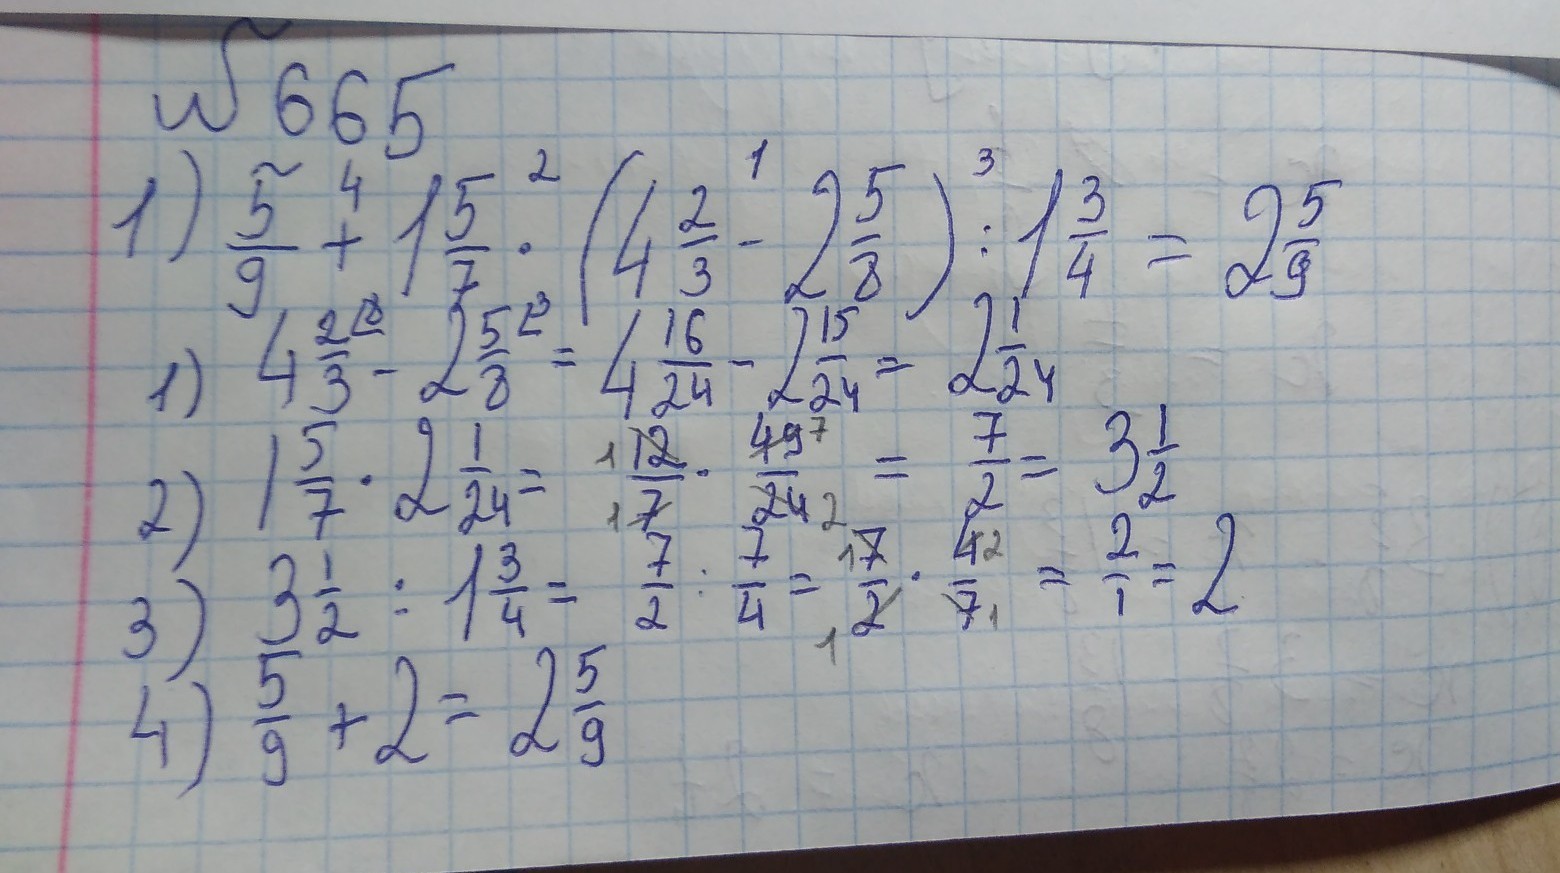 № 665
1) 5/9 + 1 5/7 · (4 2/3 - 2 5/8) : 1 3/4 = 2 5/9
1) 4 2/3 - 2 5/8 = 4 16/24 - 2 15/24 = 2 1/24
2) 1 5/7 · 2 1/24 = 12/7 · 49/24 = 7/2 = 3 1/2
3) 3 1/2 : 1 3/4 = 7/2 : 7/4 = 7/2 · 4/7 = 2/1 = 2
4) 5/9 + 2 = 2 5/9